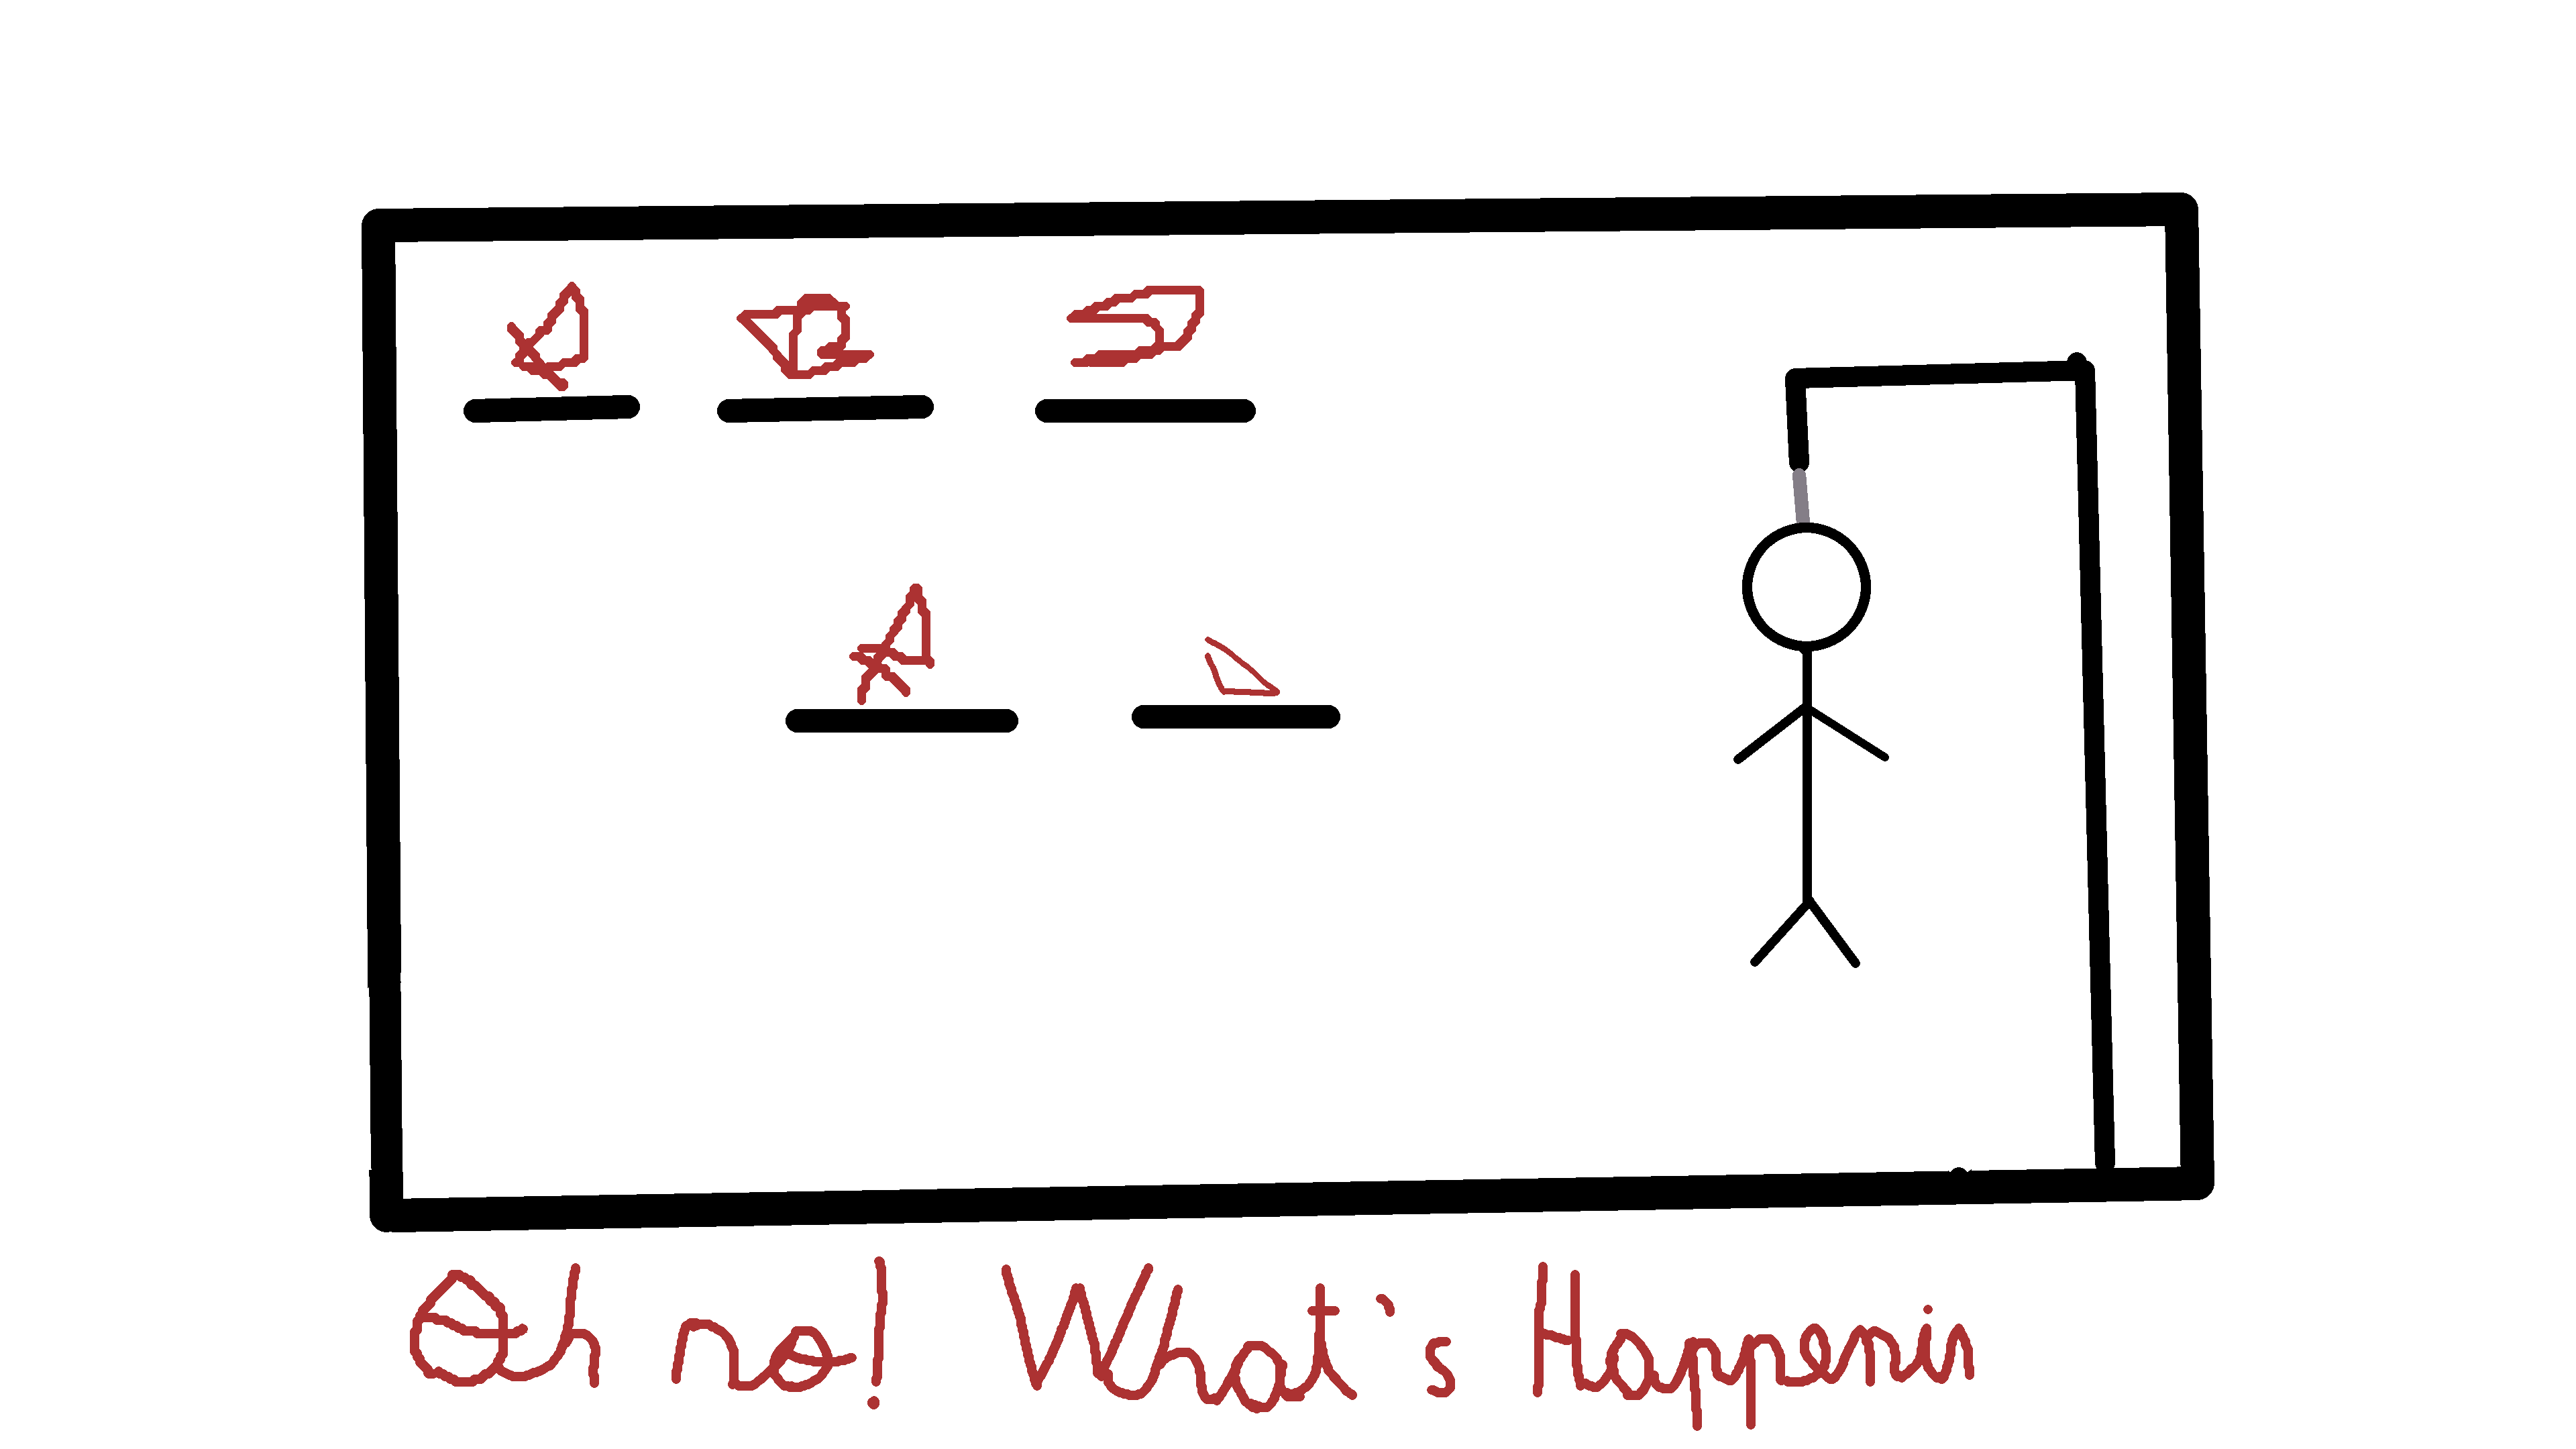 Oh no! What's Happenin